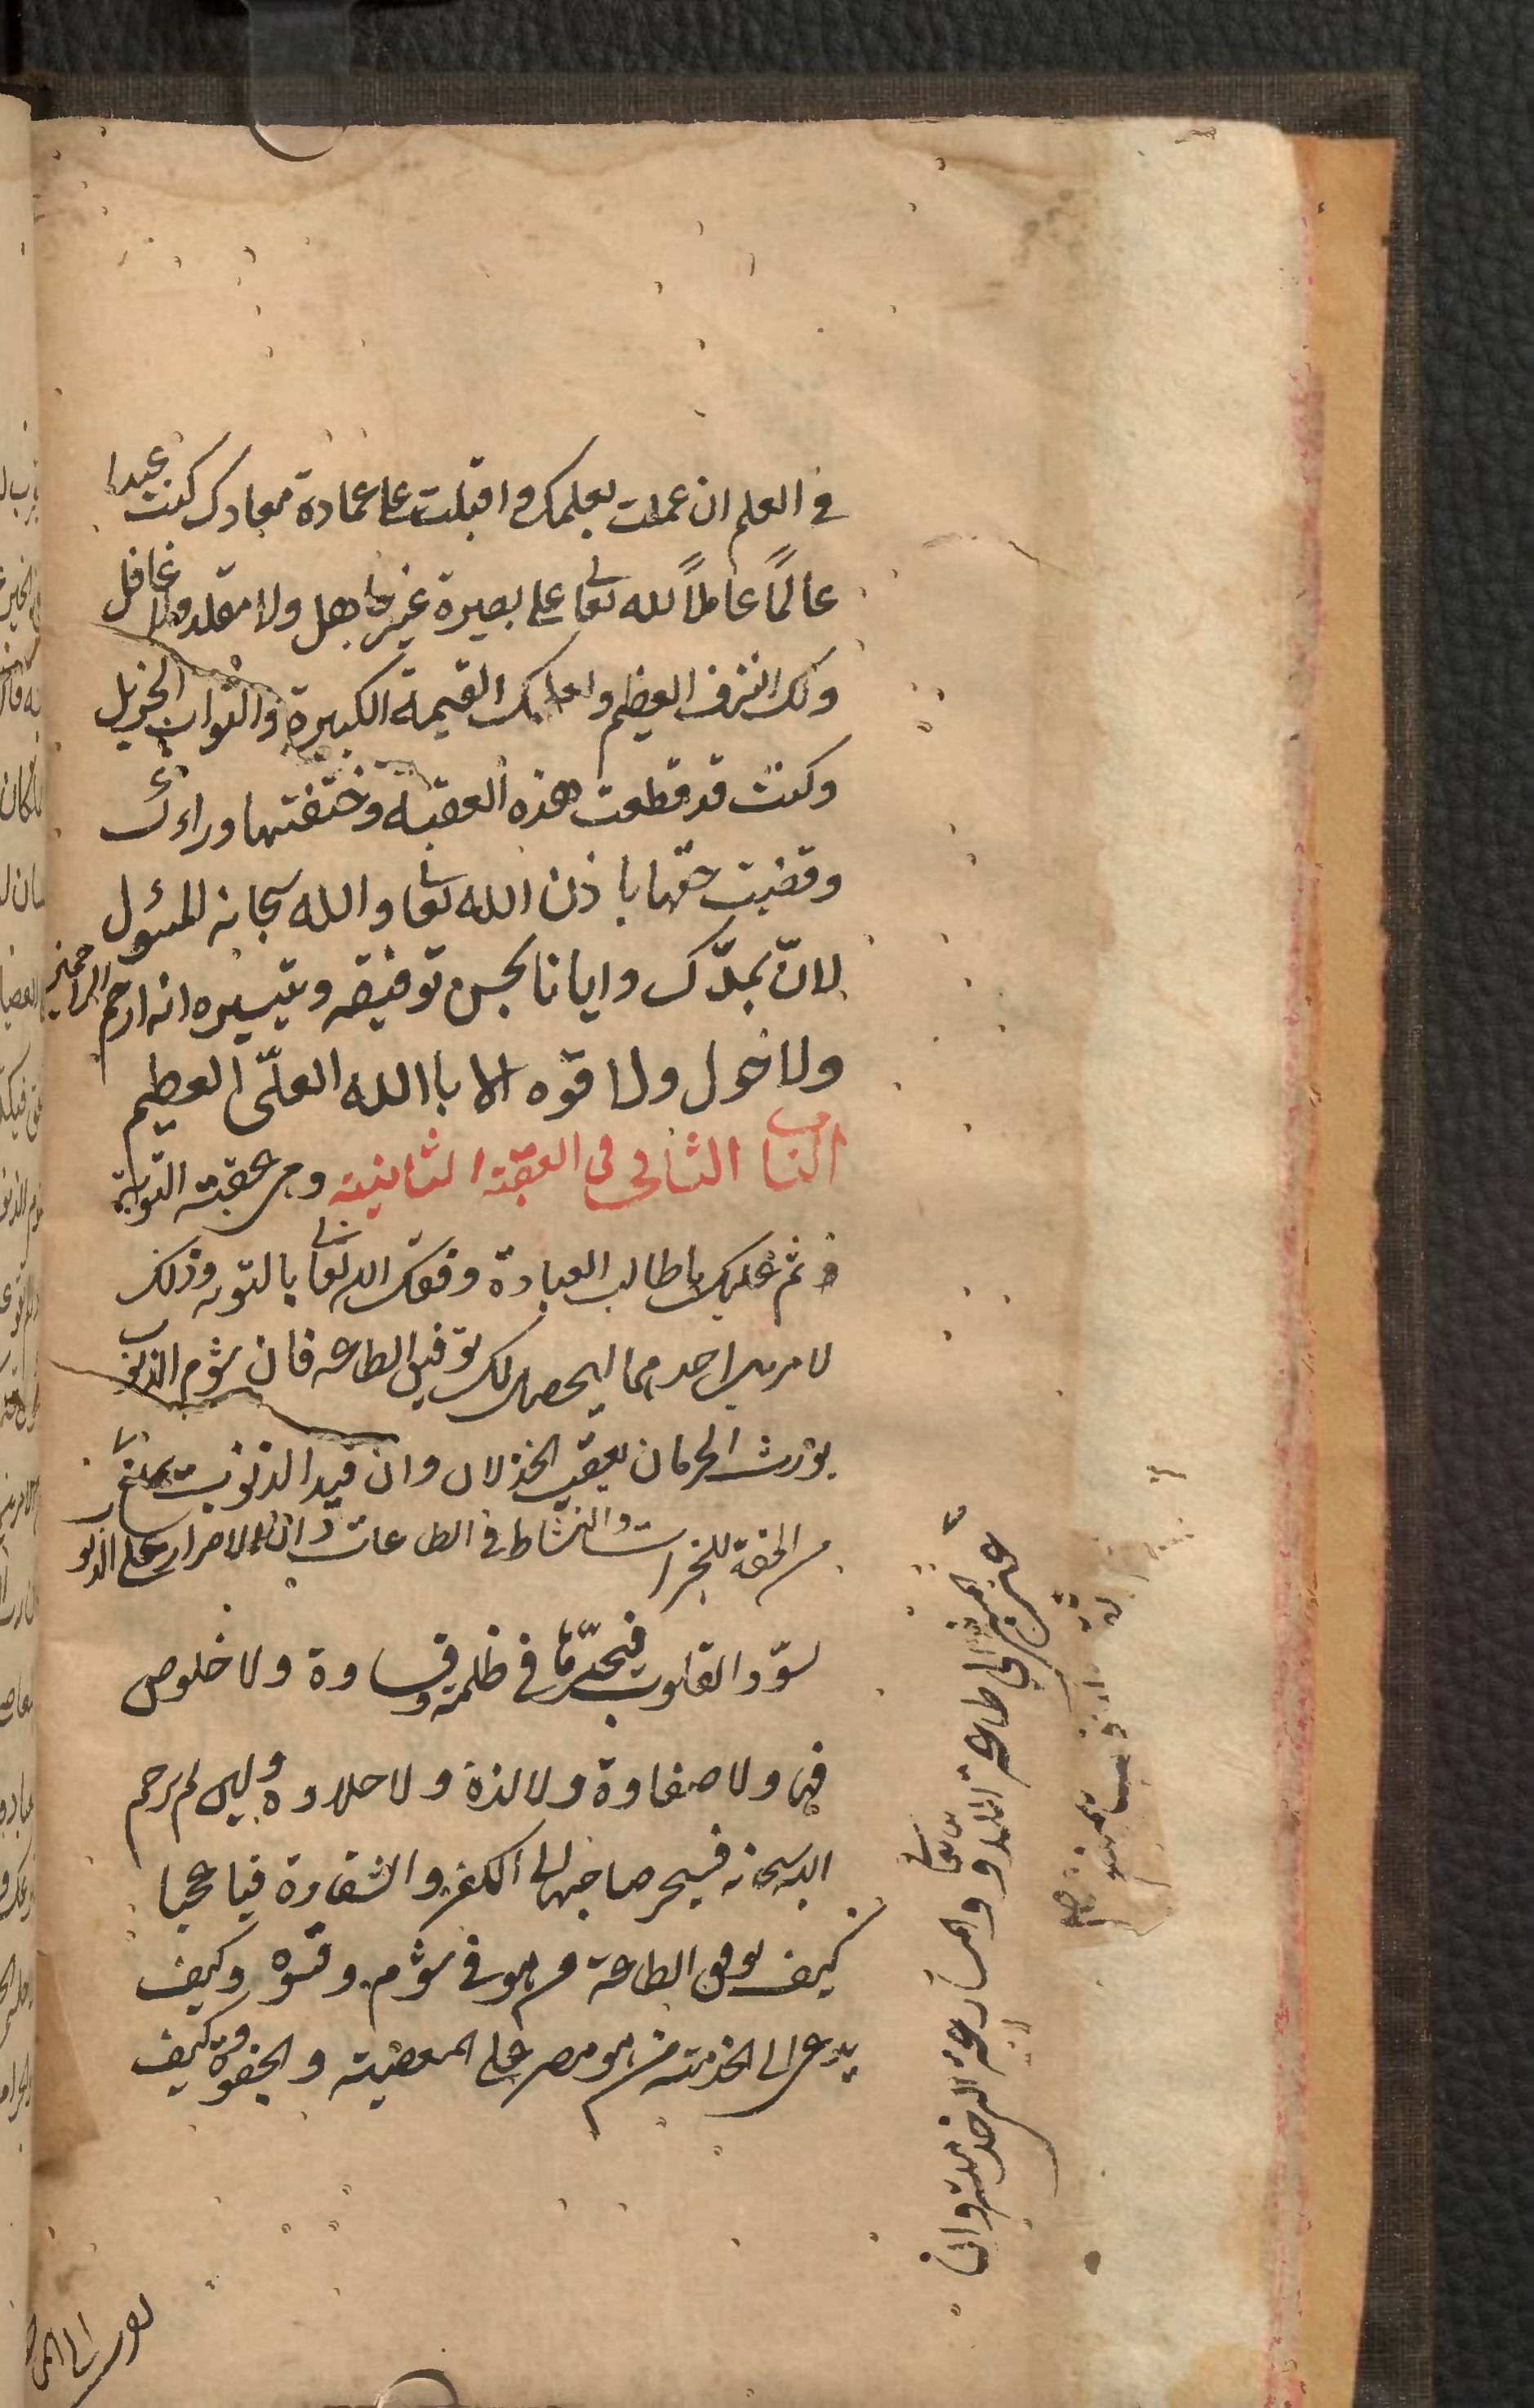 في العلم ان عملت بعلمك واقبلت على عمارة معادك كنت عبدا
عالمًا عاملاً لله تعا على بصيرة غير جاهل ولا مقلد ولا غافل
ولك الشرف العظيم ولعلمك القيمة الكبيرة والثواب الجزيل
وكنت قد قطعت هذه العقبة وخلفتها وراءك
وقضيت حقها باذن الله تعا والله سبحانه المسؤل
لان يمدّك وايانا بحسن توفيقه وتيسيره انه ارحم الراحمين
ولا حول ولا قوه الا باالله العلّى العظيم
الباب الثانى فى العقبة الثانية وهى عقبة التوبة
ثم عليك يا طالب العبادة وفقك الله تعا بالتوبه وذلك
لامرين احدهما ليحصل لك توفيق الطاعه فان شؤم الذنوب
يورث الحرمان يعقب الخذلان وان قيد الذنوب يمنع
من الخفة للخيرات والنشاط في الطاعات وان الاصرار على الذنوب
يسوّد القلوب فيحيّرها في ظلمة وقساوة ولا خلوص
فيها ولا صفاوة ولا لذة ولا حلاوة وليس لم يرحم
الله سبحانه فيجر صاحبها الى الكفر والشقاوة فيا عجبا
كيف يوفق الطاعة من هو في شؤم وقسوه وكيف
يدعى الى الخدمته من هو مصر على المعصية والجفوة وكيف
عن المشي الى طاعة الله تعا والمسارعة الى خدمته وان